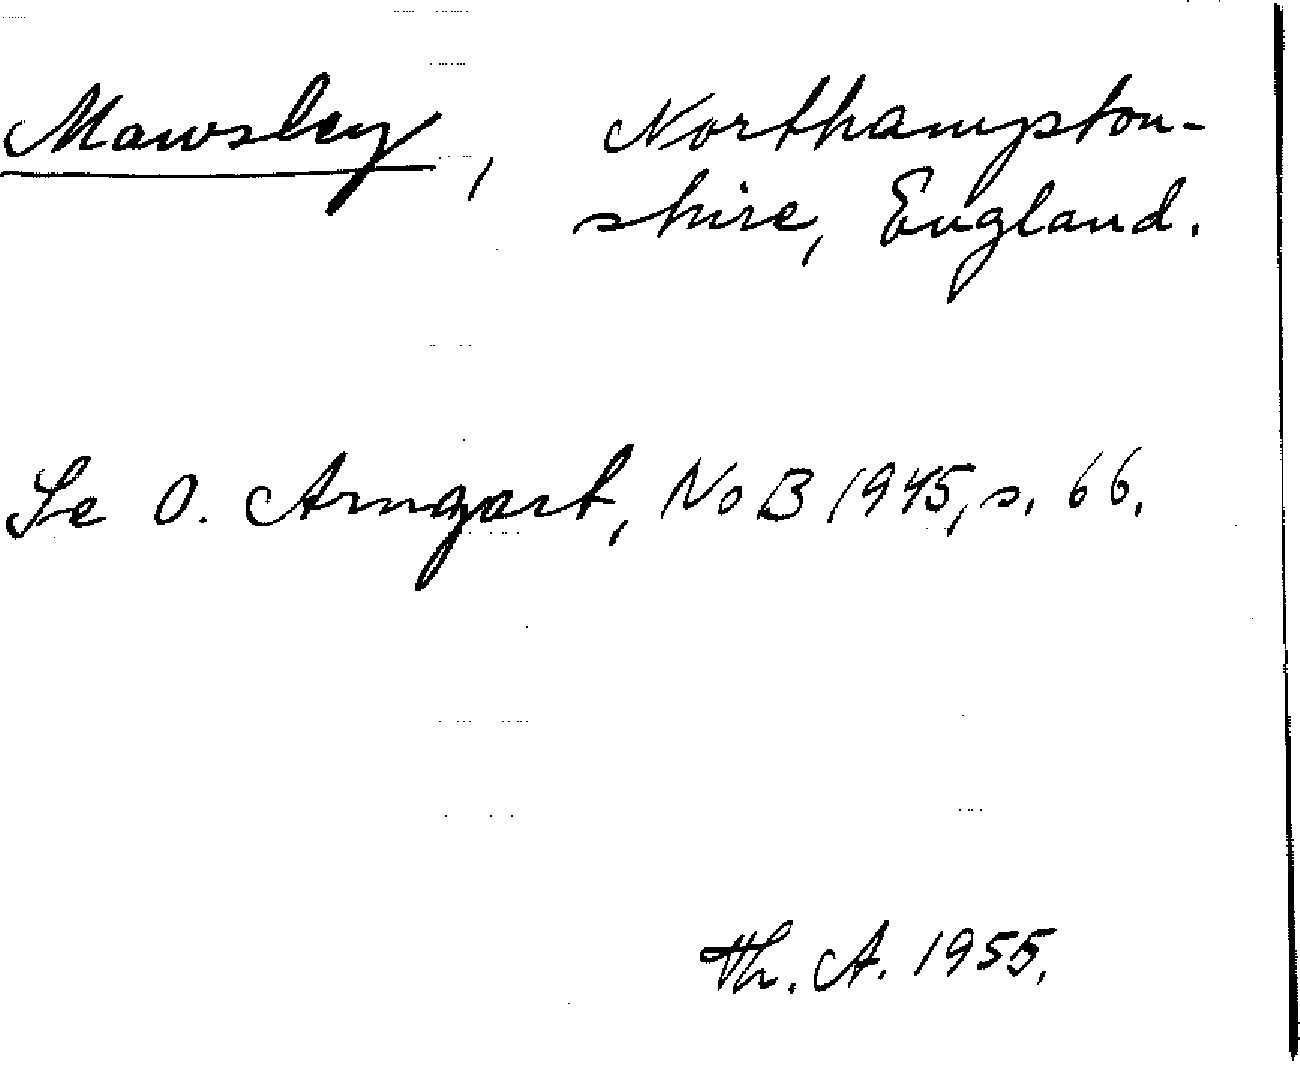 Mawsley, Northampton-
shire, England.
Se O. Arngart, NoB 1945, s. 66.
Th. A. 1955.